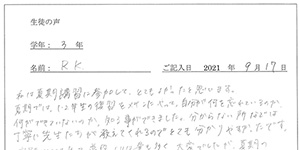 生徒の声
学年: 3 年
名前: R K ご記入日 2021 年 9月 17日
私は夏期講習に参加して、とてもよかったと思います。
夏期では、1、2年生の復習をメインにやって、自分が何を忘れているのか、
何ができていないのか、知る事ができました。分からない所などは
丁寧に先生たちが教えてくれるのでとても分かりやすかったです。